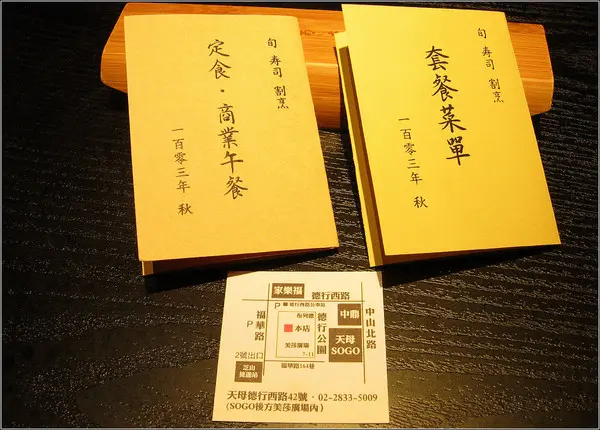 旬 寿司 割烹
定食・商業午餐
一百零三年 秋
旬 寿司 割烹
套餐菜單
一百零三年 秋
家樂福
德行西路
P
德行西路公車站
中山北路
福華路
P
布列德
本店
德行公園
中鼎
天母
SOGO
美莎廣場
7-11
2號出口
芝山
捷運站
福華路164巷
天母德行西路42號‧02-2833-5009
(SOGO後方美莎廣場內)